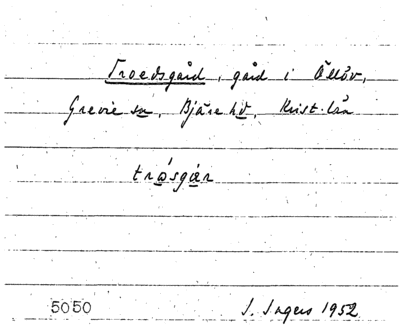 Troedsgård, gård i Ällöv,
Grevie sn, Bjäre hd, Krist. län
tròsgær
5050 I. Ingers 1952